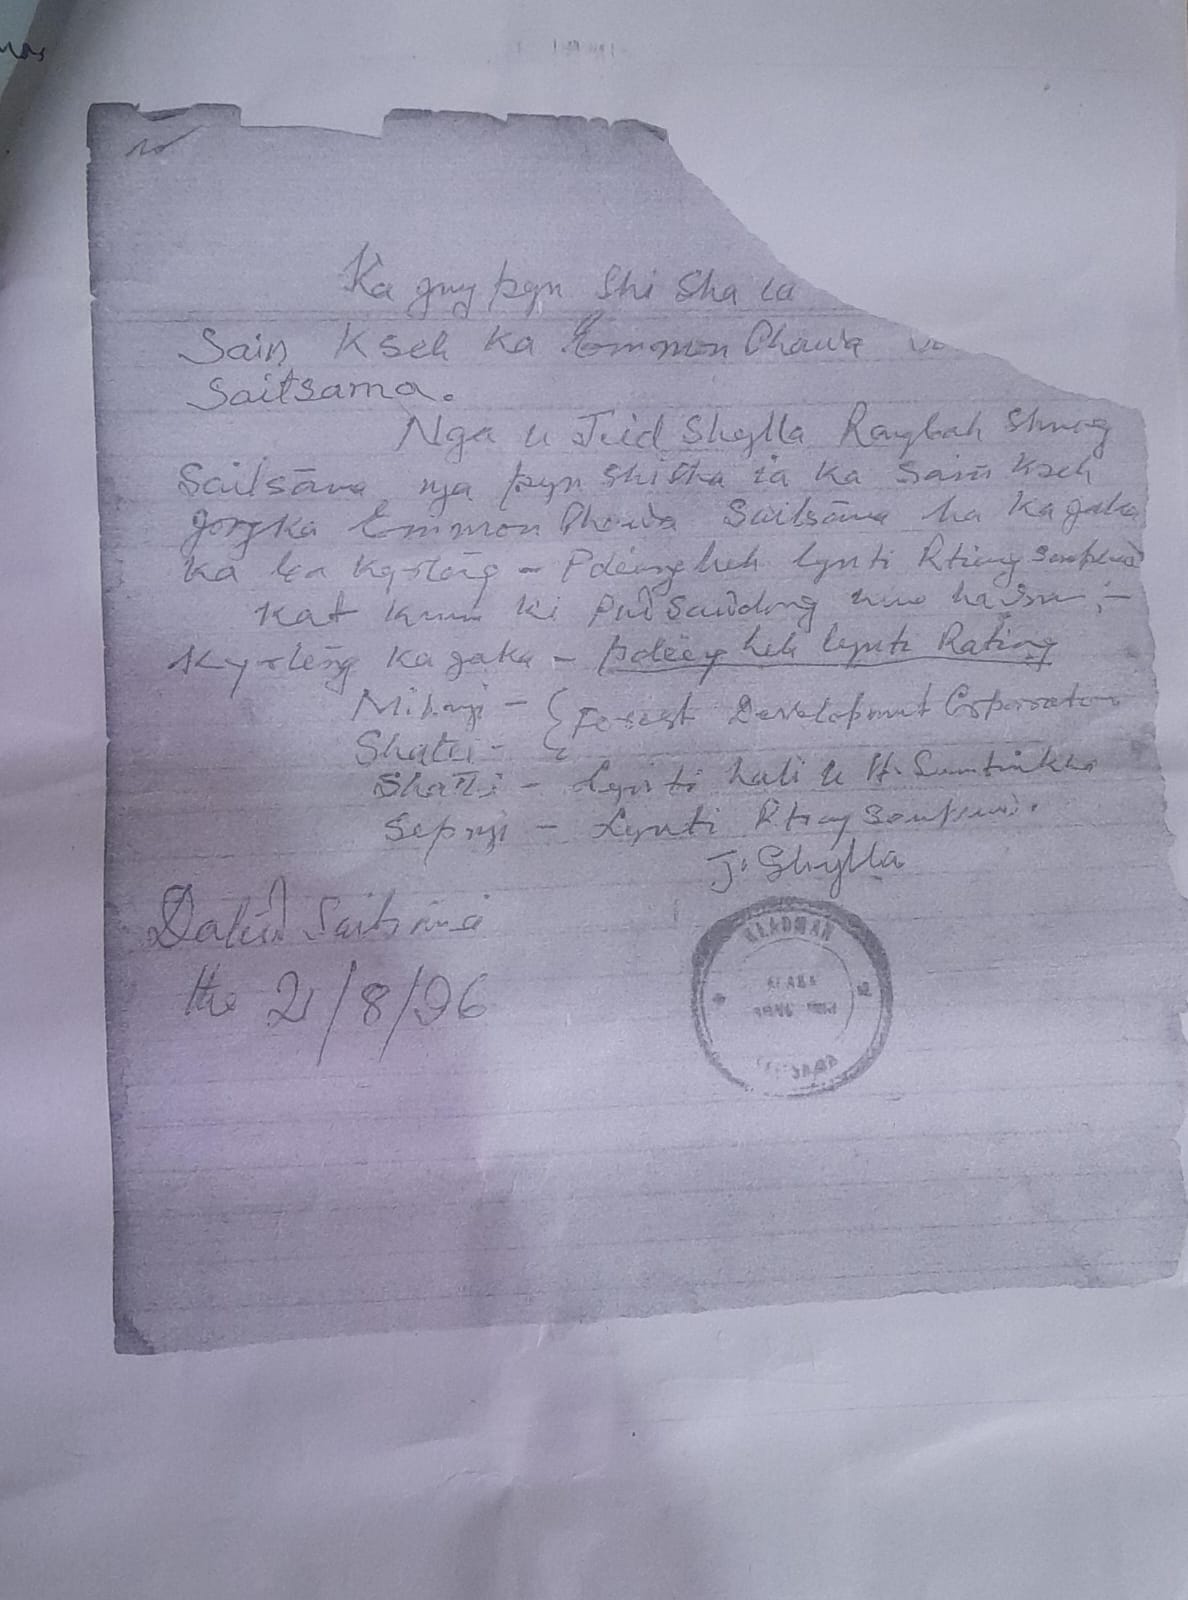 Ka jingpynshisha ia
Sain Kseh ka Emmon Dhawa
Saitsama.
Nga u Jeid Shylla Rangbah Shnong
Saitsāma, nga pynshisha ia ka Sain Kseh
jong ka Emmon Dhawa Saitsāma ha ka jaka
ka ba kyrtēng - Pdēingheh lynti Rtiang
Kat kum ki pud sawdong kum harum ;-
Kyrtēng ka jaka - Pdēingheh lynti Ratiang
Mihngi - { Forest Development Corporation
Shatei -
Shathi - Lynti bali u H. Sumtinkha
Sepngi - Lynti Rtiang
J. Shylla
Dated Saitsama
the 21/8/96
HEADMAN